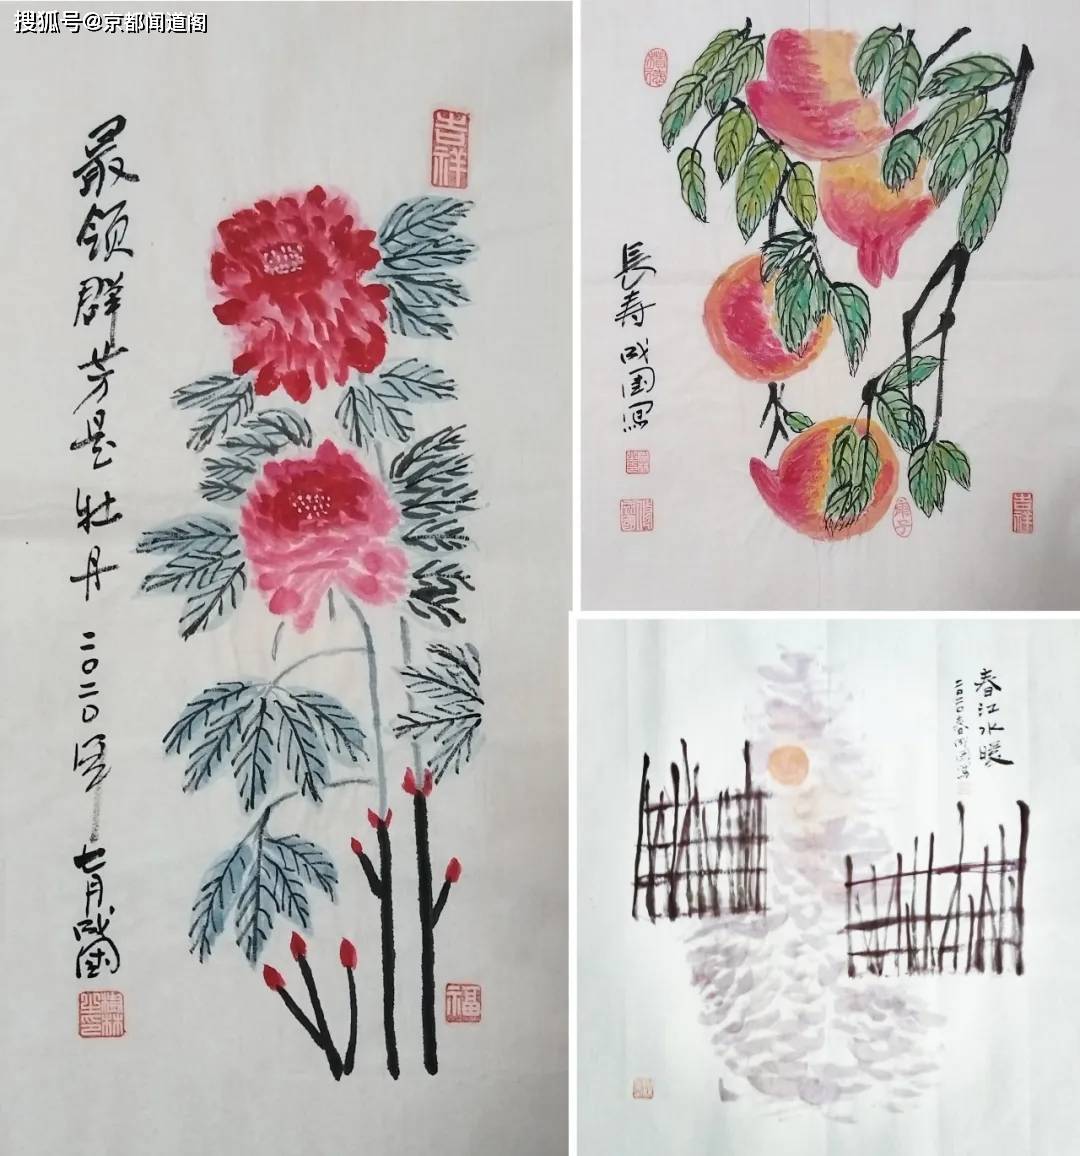 搜狐号@京都闻道阁
吉祥
最领群芳是牡丹 二〇二〇年 七月成国
福
長寿 成国写
吉祥
庚子
春江水暖
二〇二〇春成国写